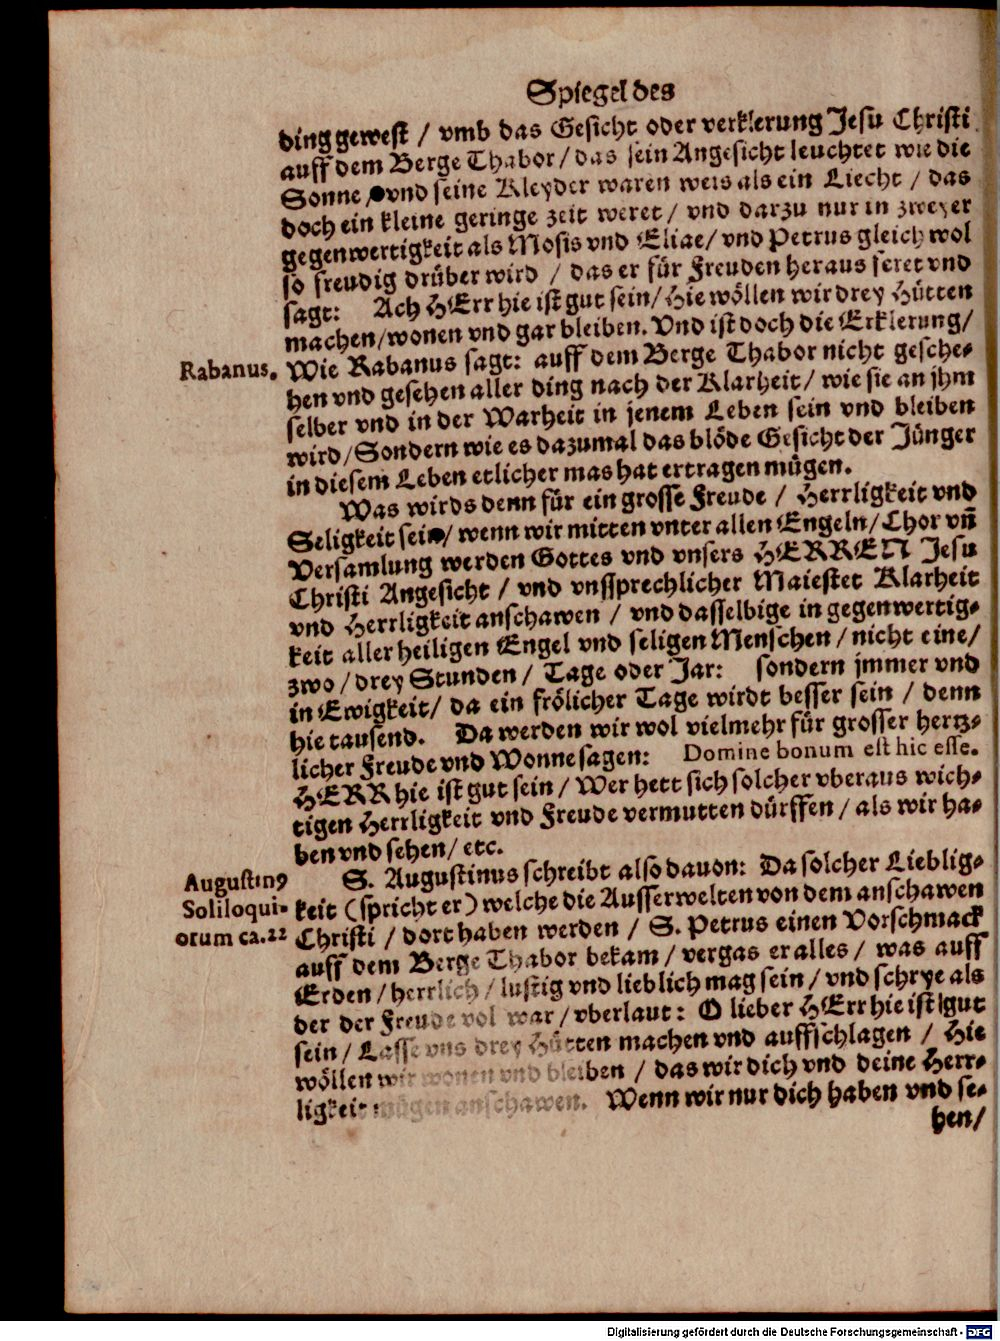 Spiegel des
ding gewest / vmb das Gesicht oder verklerung Jesu Christi
auff dem Berge Thabor / das sein Angesicht leuchtet wie die
Sonne / vnd seine Kleyder waren weis als ein Liecht / das
doch ein kleine geringe zeit weret / vnd darzu nur in zweyer
gegenwertigkeit als Mosis vnd Eliae / vnd Petrus gleich wol
so freudig drüber wird / das er für Freuden heraus feret vnd
sagt: Ach HErr hie ist gut sein / Hie wöllen wir drey Hütten
machen / wonen vnd gar bleiben. Vnd ist doch die Erklerung /
Rabanus.
Wie Rabanus sagt: auff dem Berge Thabor nicht gesche-
hen vnd gesehen aller ding nach der Klarheit / wie sie an jhm
selber vnd in der Warheit in jenem Leben sein vnd bleiben
wird / Sondern wie es dazumal das blöde Gesicht der Jünger
in diesem Leben etlicher mas hat ertragen mügen.
Was wirds denn für ein grosse Freude / Herrligkeit vnd
Seligkeit sein / wenn wir mitten vnter allen Engeln / Chor vñ
Versamlung werden Gottes vnd vnsers HERREN Jesu
Christi Angesicht / vnd vnssprechlicher Maiestet Klarheit
vnd Herrligkeit anschawen / vnd dasselbige in gegenwertig-
keit aller heiligen Engel vnd seligen Menschen / nicht eine /
zwo / drey Stunden / Tage oder Jar: sondern jmmer vnd
in Ewigkeit / da ein frölicher Tage wirdt besser sein / denn
hie tausend. Da werden wir wol vielmehr für grosser hertz-
licher Freude vnd Wonne sagen: Domine bonum est hic esse.
HERR hie ist gut sein / Wer hett sich solcher vberaus wich-
tigen Herrligkeit vnd Freude vermutten dürffen / als wir ha-
ben vnd sehen / etc.
Augustin⁹
Soliloqui-
orum ca. 22
S. Augustinus schreibt also dauon: Da solcher Lieblig-
keit (spricht er) welche die Ausserwelten von dem anschawen
Christi / dort haben werden / S. Petrus einen Vorschmack
auff dem Berge Thabor bekam / vergas er alles / was auff
Erden / herrlich / lustig vnd lieblich mag sein / vnd schrye als
der der Freude vol war / vberlaut: O lieber HErr hie ist gut
sein / Lasse vns drey Hütten machen vnd auffschlagen / Hie
wöllen wir wonen vnd bleiben / das wir dich vnd deine Herr-
ligkeit mügen anschawen. Wenn wir nur dich haben vnd se-
hen /
Digitalisierung gefördert durch die Deutsche Forschungsgemeinschaft - DFG